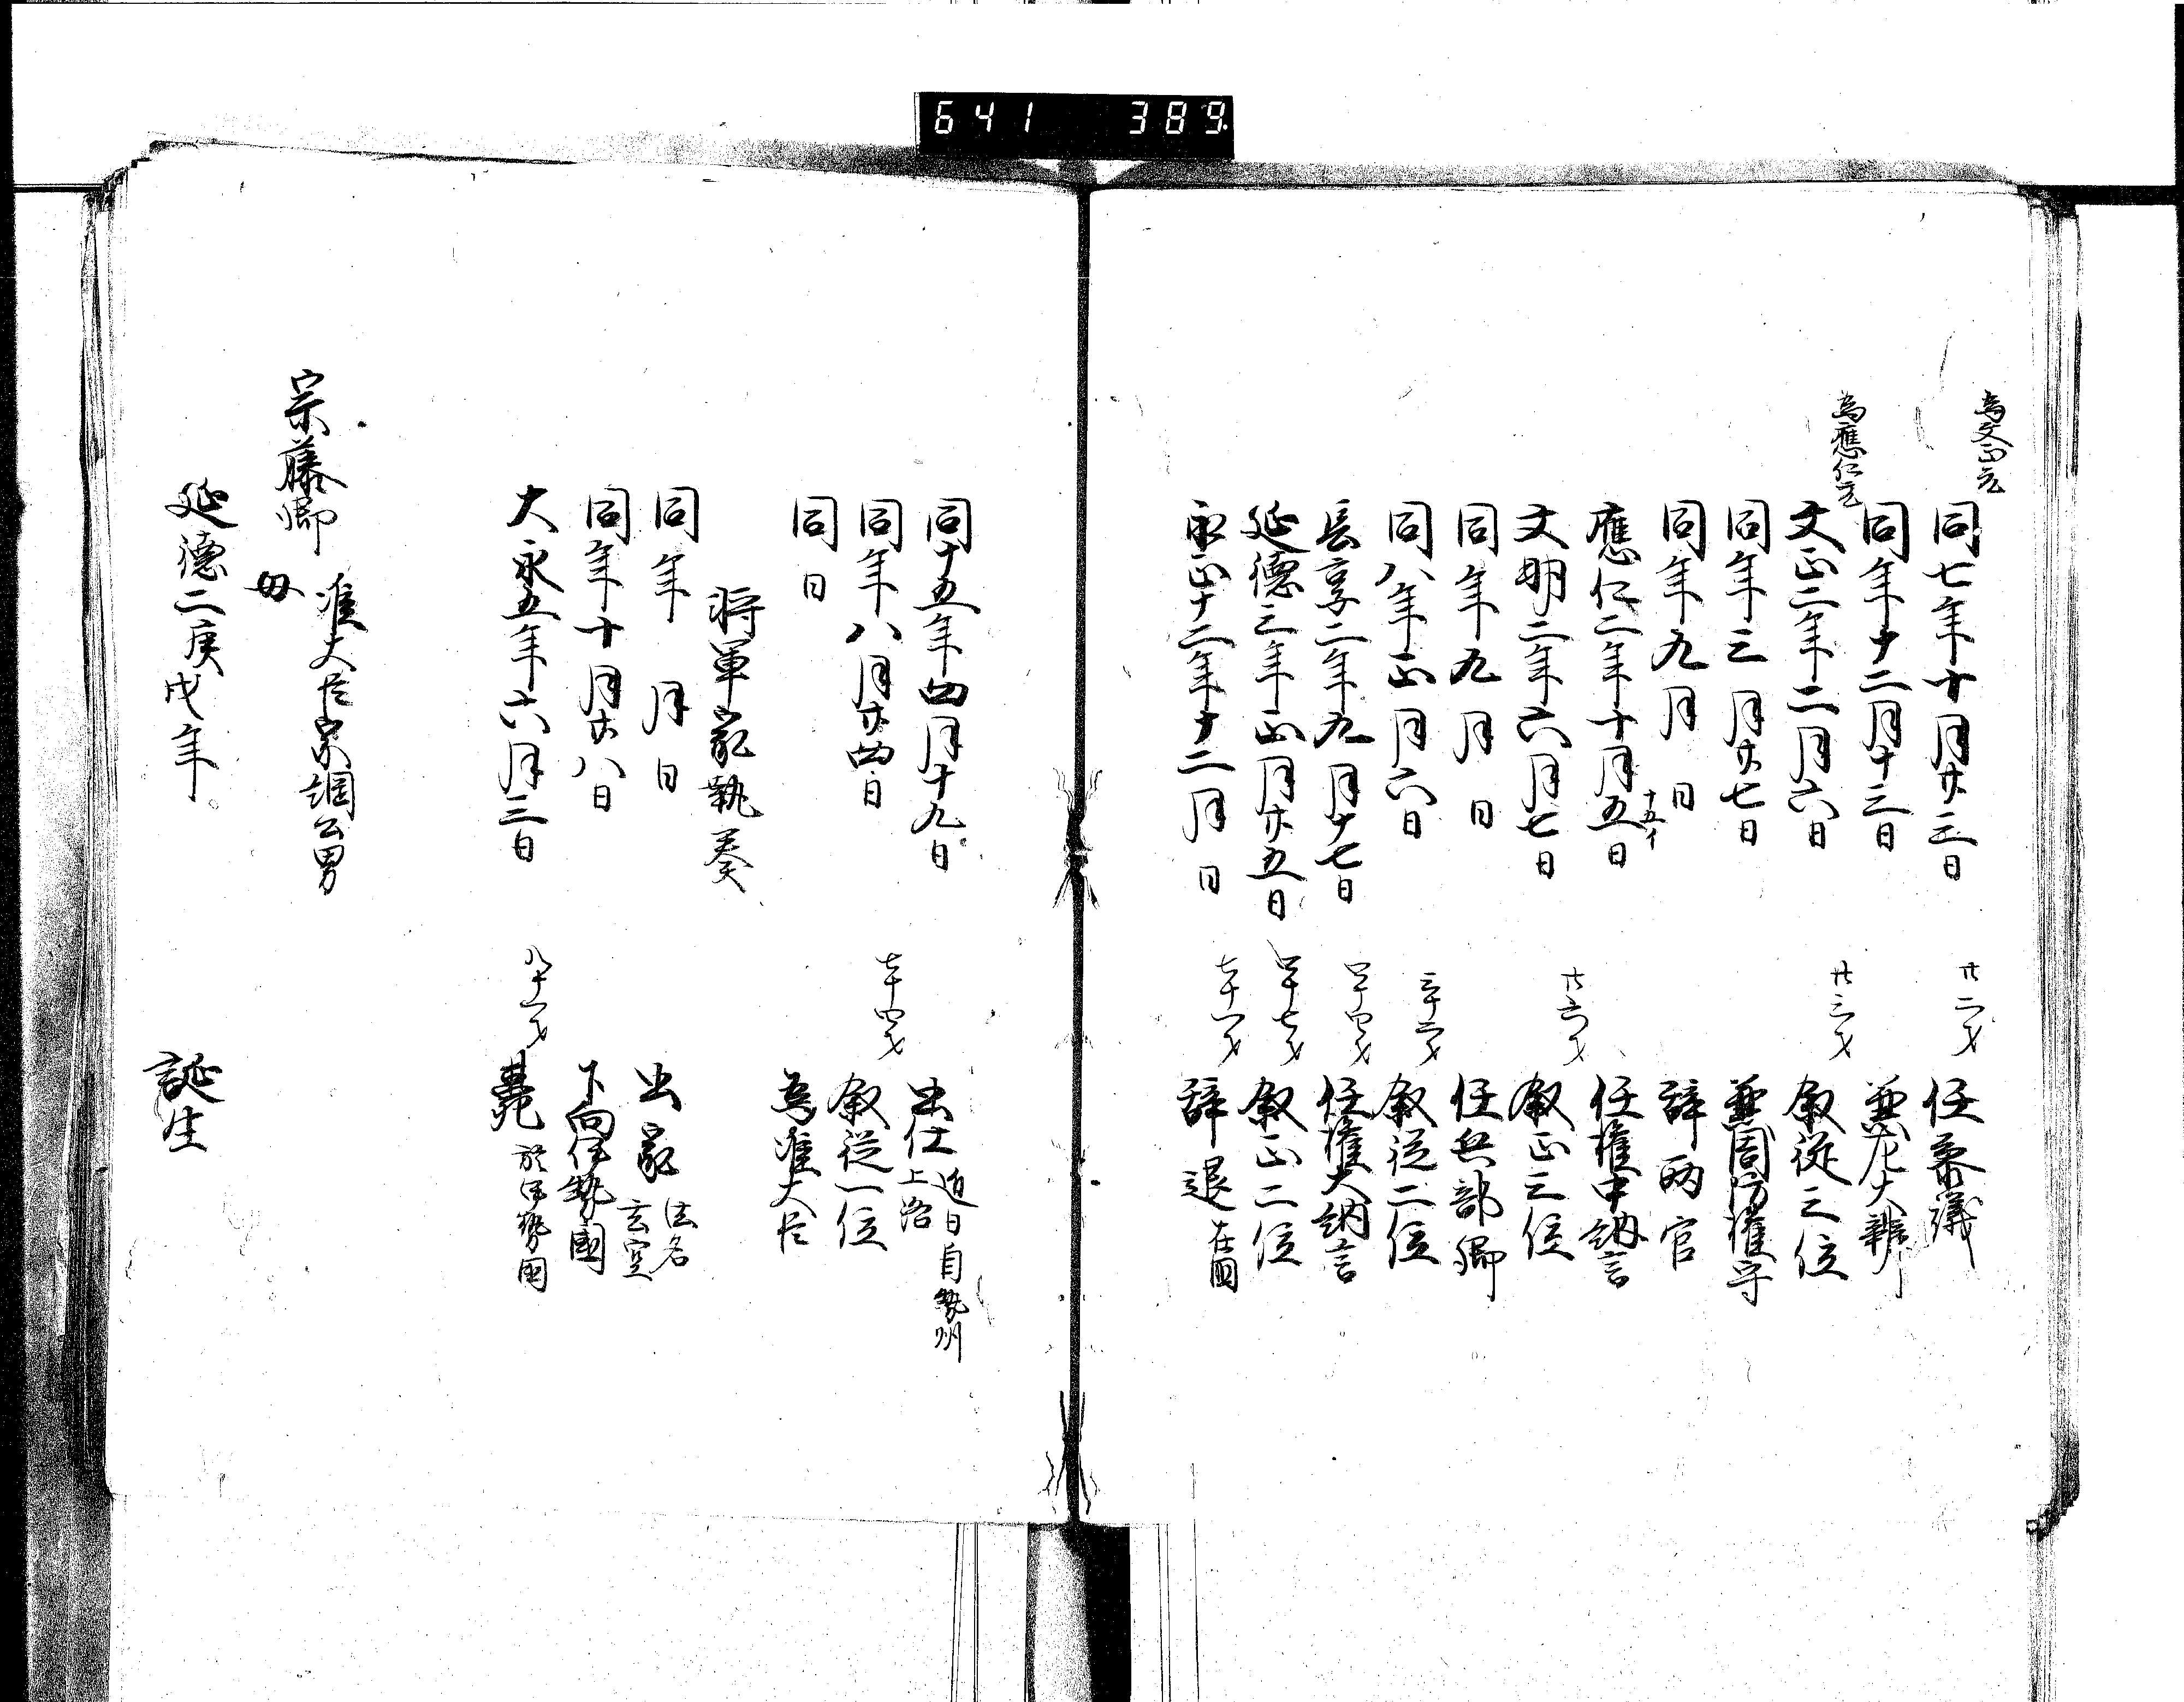 641 389
為文正元
同七年十月廿三日 廿二才 任参議
同年十二月十三日 兼左大辨
為應仁元
文正二年二月六日 廿三才 叙従三位
同年三月廿七日 兼周防權守
同年九月日 辞両官
應仁二年十月五日 任權中納言
十五イ
文明二年六月七日 廿六才 叙正三位
同年九月日 任兵部卿
同八年正月六日 三十二才 叙従二位
長享二年九月十七日 四十四才 任權大納言
延德三年正月廿五日 四十七才 叙正二位
永正十二年十二月日 七十一才 辞退 在国
同十五年四月十九日 出仕 近日自勢州上洛
同年八月廿四日 七十四才 叙従一位
同日 為准大臣
将軍家執奏
同年月日 出家 法名玄空
同年十月廿八日 下向伊勢國
大永五年六月三日 八十一才 薨 於伊勢國
宗藤卿 准大臣宗綱公男
母
延德二庚戌年 誕生